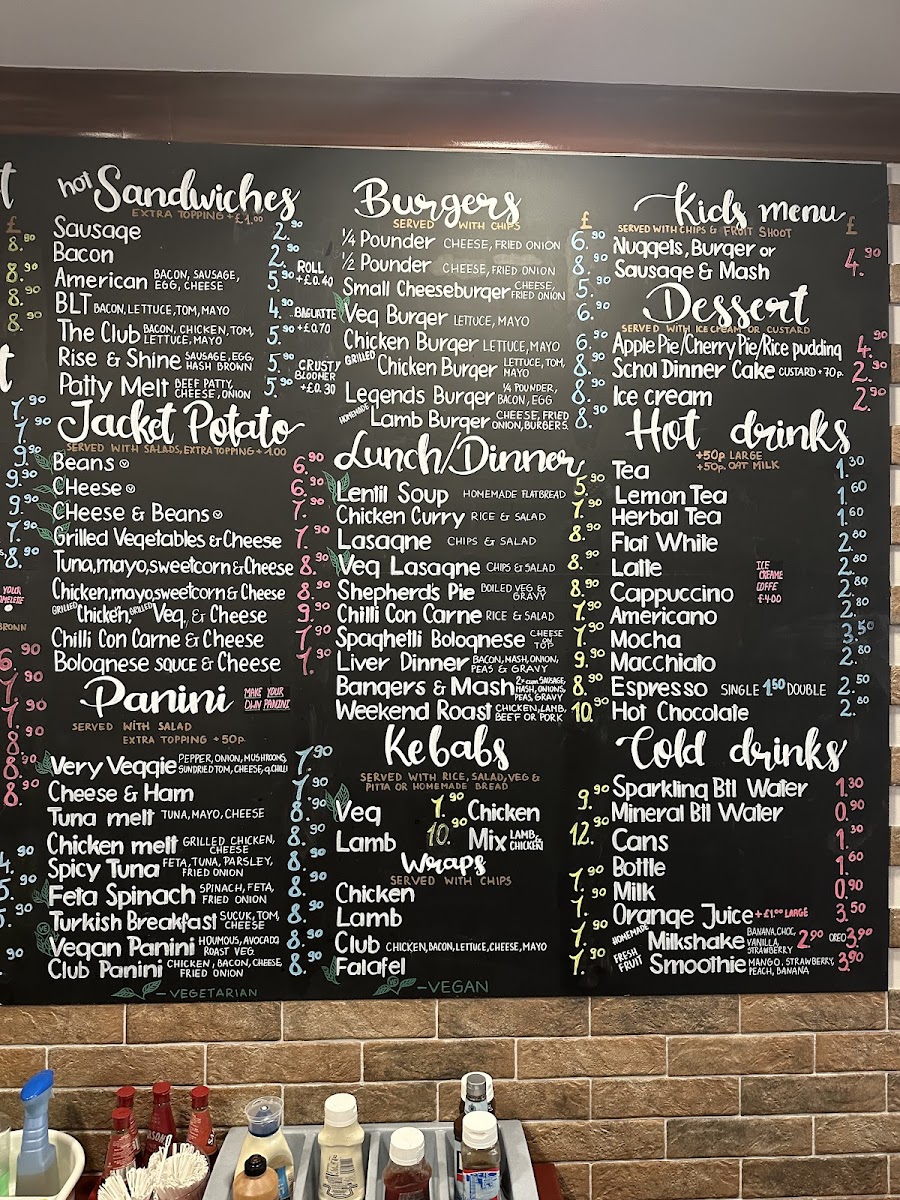 hot Sandwiches
EXTRA TOPPING + £1.00
Sausage 2.90
Bacon 2.90
American BACON, SAUSAGE, EGG, CHEESE 5.90
BLT BACON, LETTUCE, TOM, MAYO 4.90
The Club BACON, CHICKEN, TOM, LETTUCE, MAYO 5.90
Rise & Shine SAUSAGE, EGG, HASH BROWN 5.90
Patty Melt BEEF PATTY, CHEESE, ONION 5.90
ROLL +£0.40
BAGUATTE +£0.70
CRUSTY BLOOMER +£0.30
Jacket Potato
SERVED WITH SALADS, EXTRA TOPPING + 1.00
Beans 6.90
CHeese 6.90
CHeese & Beans 7.90
Grilled Vegetables & Cheese 7.90
Tuna, mayo, sweetcorn & Cheese 8.90
Chicken, mayo, sweetcorn & Cheese 8.90
GRILLED Chicken, GRILLED Veg, & Cheese 9.90
Chilli Con Carne & Cheese 7.90
Bolognese sauce & Cheese 7.90
Panini MAKE YOUR OWN PANINI
SERVED WITH SALAD
EXTRA TOPPING +50p
Very Veggie PEPPER, ONION, MUSHROOMS, SUNDRIED TOM, CHEESE, CHILLI 7.90
Cheese & Ham 7.90
Tuna melt TUNA, MAYO, CHEESE 8.90
Chicken melt GRILLED CHICKEN, CHEESE 8.90
Spicy Tuna FETA, TUNA, PARSLEY, FRIED ONION 8.90
Feta Spinach SPINACH, FETA, FRIED ONION 8.90
Turkish Breakfast SUCUK, TOM, CHEESE 8.90
Vegan Panini HOUMOUS, AVOCADO, ROAST VEG 8.90
Club Panini CHICKEN, BACON, CHEESE, FRIED ONION 8.90
-VEGETARIAN
Burgers
SERVED WITH CHIPS £
¼ Pounder CHEESE, FRIED ONION 6.90
½ Pounder CHEESE, FRIED ONION 8.90
Small Cheeseburger CHEESE, FRIED ONION 5.90
Veg Burger LETTUCE, MAYO 6.90
Chicken Burger LETTUCE, MAYO 6.90
GRILLED Chicken Burger LETTUCE, TOM, MAYO 8.90
Legends Burger ¼ POUNDER, BACON, EGG 8.90
HOMEMADE Lamb Burger CHEESE, FRIED ONION, BURGERS. 8.90
Lunch/Dinner
Lentil Soup HOMEMADE FLATBREAD 5.90
Chicken Curry RICE & SALAD 7.90
Lasagne CHIPS & SALAD 8.90
Veg Lasagne CHIPS & SALAD 8.90
Shepherd's Pie BOILED VEG & GRAVY 8.90
Chilli Con Carne RICE & SALAD 7.90
Spaghetti Bolognese CHEESE ON TOP 7.90
Liver Dinner BACON, MASH, ONION, PEAS & GRAVY 9.90
Bangers & Mash 2x CUM SAUSAGE, MASH, ONIONS, PEAS, GRAVY 8.90
Weekend Roast CHICKEN, LAMB, BEEF OR PORK 10.90
Kebabs
SERVED WITH RICE, SALAD, VEG & PITTA OR HOMEMADE BREAD
Veg 7.90 Chicken 9.90
Lamb 10.90 Mix LAMB, CHICKEN 12.90
Wraps
SERVED WITH CHIPS
Chicken 7.90
Lamb 7.90
Club CHICKEN, BACON, LETTUCE, CHEESE, MAYO 7.90
Falafel 7.90
VE -VEGAN
Kids menu
SERVED WITH CHIPS & FRUIT SHOOT £
Nuggets, Burger or
Sausage & Mash 4.90
Dessert
SERVED WITH ICE CREAM OR CUSTARD
Apple Pie/Cherry Pie/Rice pudding 4.90
Schol Dinner Cake CUSTARD +70p. 2.90
Ice cream 2.90
Hot drinks
+50p LARGE
+50p. OAT MILK
Tea 1.30
Lemon Tea 1.60
Herbal Tea 1.60
Flat White 2.80
Latte 2.80
Cappuccino 2.80
Americano 2.80
Mocha 3.50
Macchiato 2.80
ICE CREAME COFFE £4.00
Espresso SINGLE 1.50 DOUBLE 2.50
Hot Chocolate 2.80
Cold drinks
Sparkling Btl Water 1.30
Mineral Btl Water 0.90
Cans 1.30
Bottle 1.60
Milk 0.90
Orange Juice +£1.00 LARGE 3.50
HOMEMADE Milkshake BANANA, CHOC, VANILLA, STRAWBERRY 2.90 OREO 3.90
FRESH FRUIT Smoothie MANGO, STRAWBERRY, PEACH, BANANA 3.90